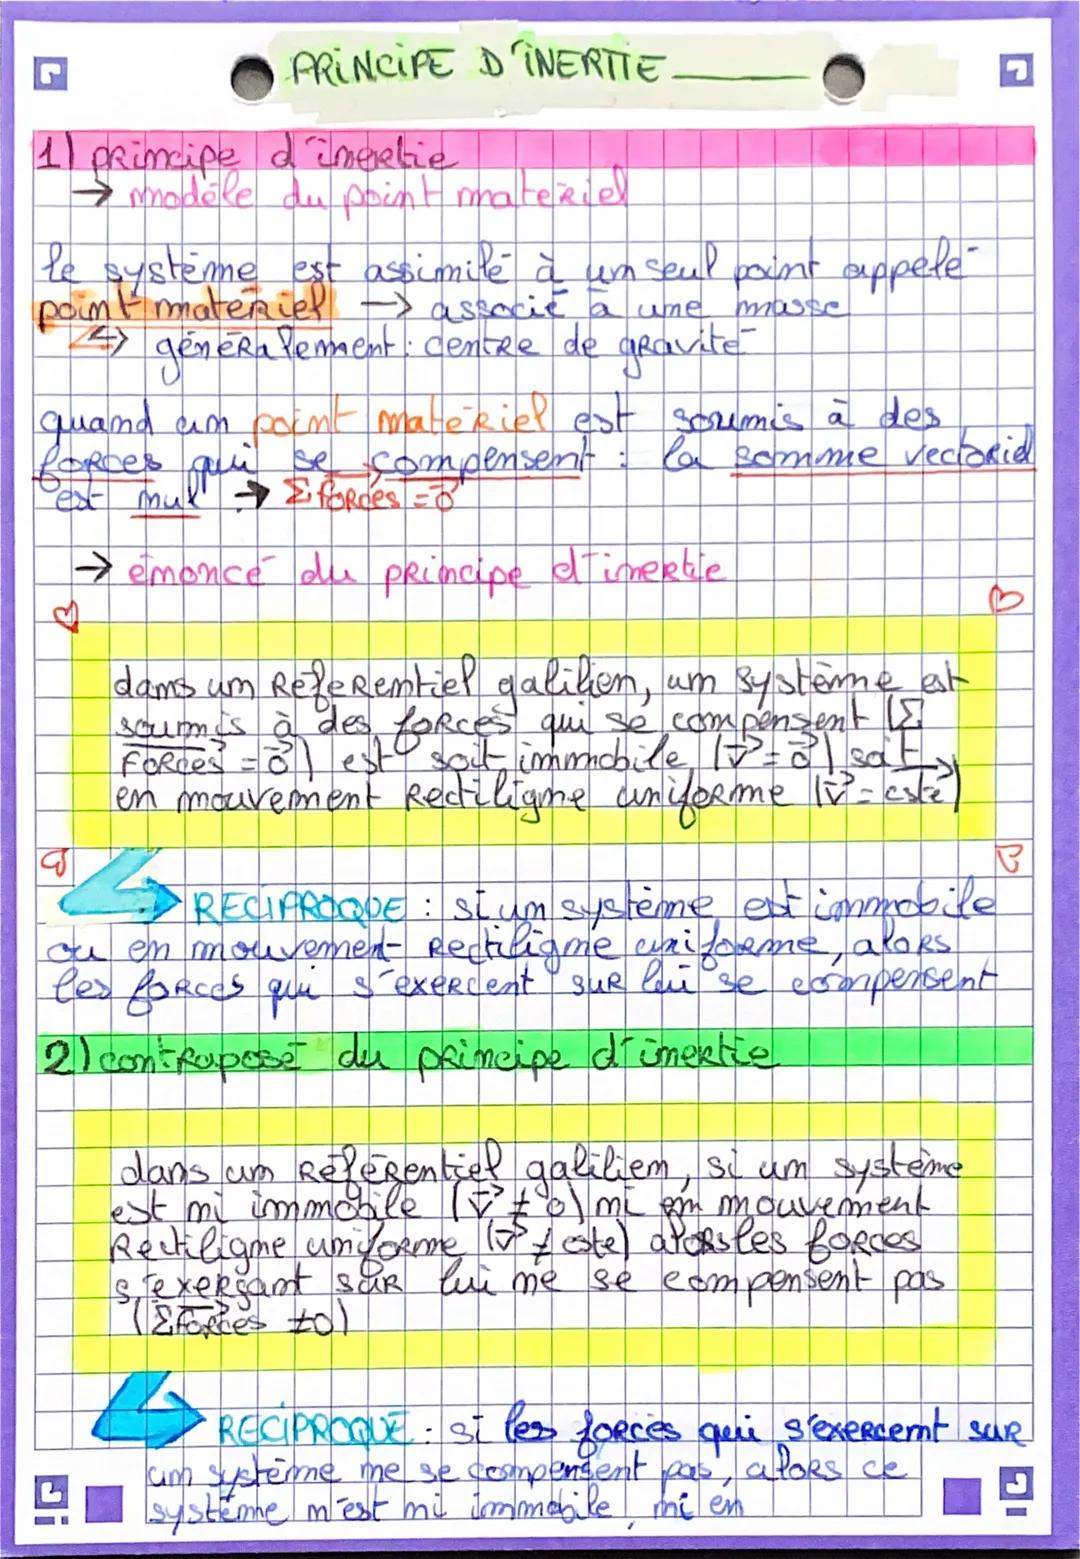 PRINCIPE D'INERTIE
1) principe d'inertie
→ modèle du point matériel
le système est assimilé à un seul point appelé
point matériel → associé à une masse
↳ généralement : centre de gravité
quand un point matériel est soumis à des
forces qui se compensent : la somme vectoriel
est nul → Σ forces = 0
→ énoncé du principe d'inertie
dans un Référentiel galilien, un système est
soumis à des forces qui se compensent (Σ
forces = 0) est soit immobile (v = 0) soit
en mouvement Rectiligne uniforme (v = cste)
RECIPROQUE : si un système est immobile
ou en mouvement Rectiligne uniforme, alors
les forces qui s'exercent sur lui se compensent
2) contraposé du principe d'inertie
dans un Référentiel galiliem, si un système
est ni immobile (v ≠ 0) ni en mouvement
Rectiligne uniforme (v ≠ cste) alors les forces
s'exerçant sur lui ne se compensent pas
(Σ forces ≠ 0)
RECIPROQUE : si les forces qui s'exercent sur
un système ne se compensent pas, alors ce
système n'est ni immobile, ni en